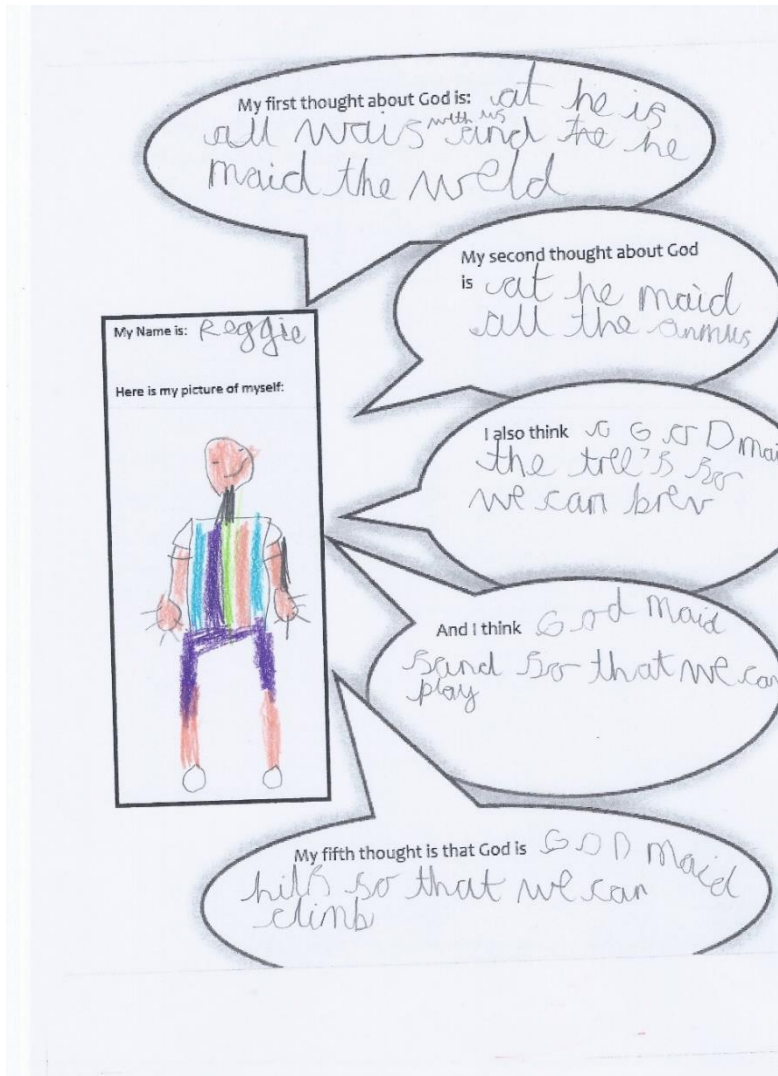 My first thought about God is: at he is
all wais with us and he he
maid the weld
My second thought about God
is at he maid
all the anmus
My Name is: Reggie
Here is my picture of myself:
I also think GOD mai
the tree's so
we can brev
And I think God maid
sand so that we can
play
My fifth thought is that God is GOD maid
hils so that we can
climb